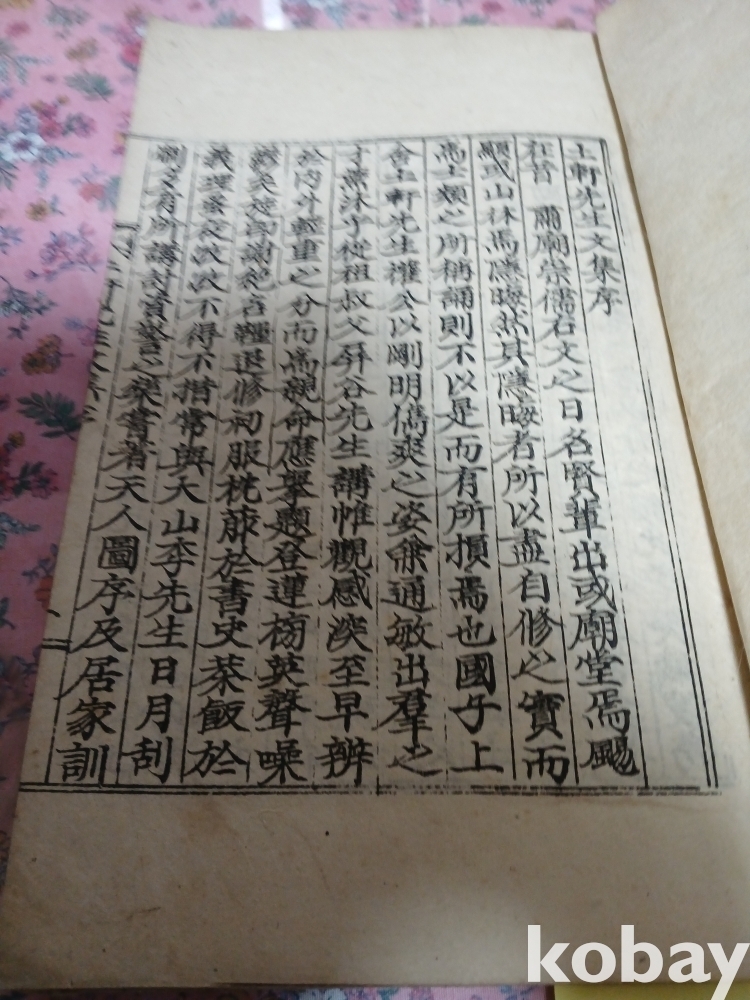 土軒先生文集序
在昔 肅廟崇儒右文之日名賢輩出或廟堂焉颺
顯或山林焉隱晦然其隱晦者所以盡自修之實而
高士類之所稱誦則不以是而有所損焉也國子上
舍土軒先生權公以剛明儁爽之姿兼通敏出羣之
才薰沐乎從祖叔父屛谷先生講帷觀感深至早辨
於內外輕重之分而爲親命應擧題登蓮榜英聲噪
蔚矣旋卽謝絶名韁退修初服枕葄於書史茶飯於
義理蚤夜孜孜不得不措常與大山李先生日月刮
劘又有所講討質警之集書著天人圖序及居家訓
kobay